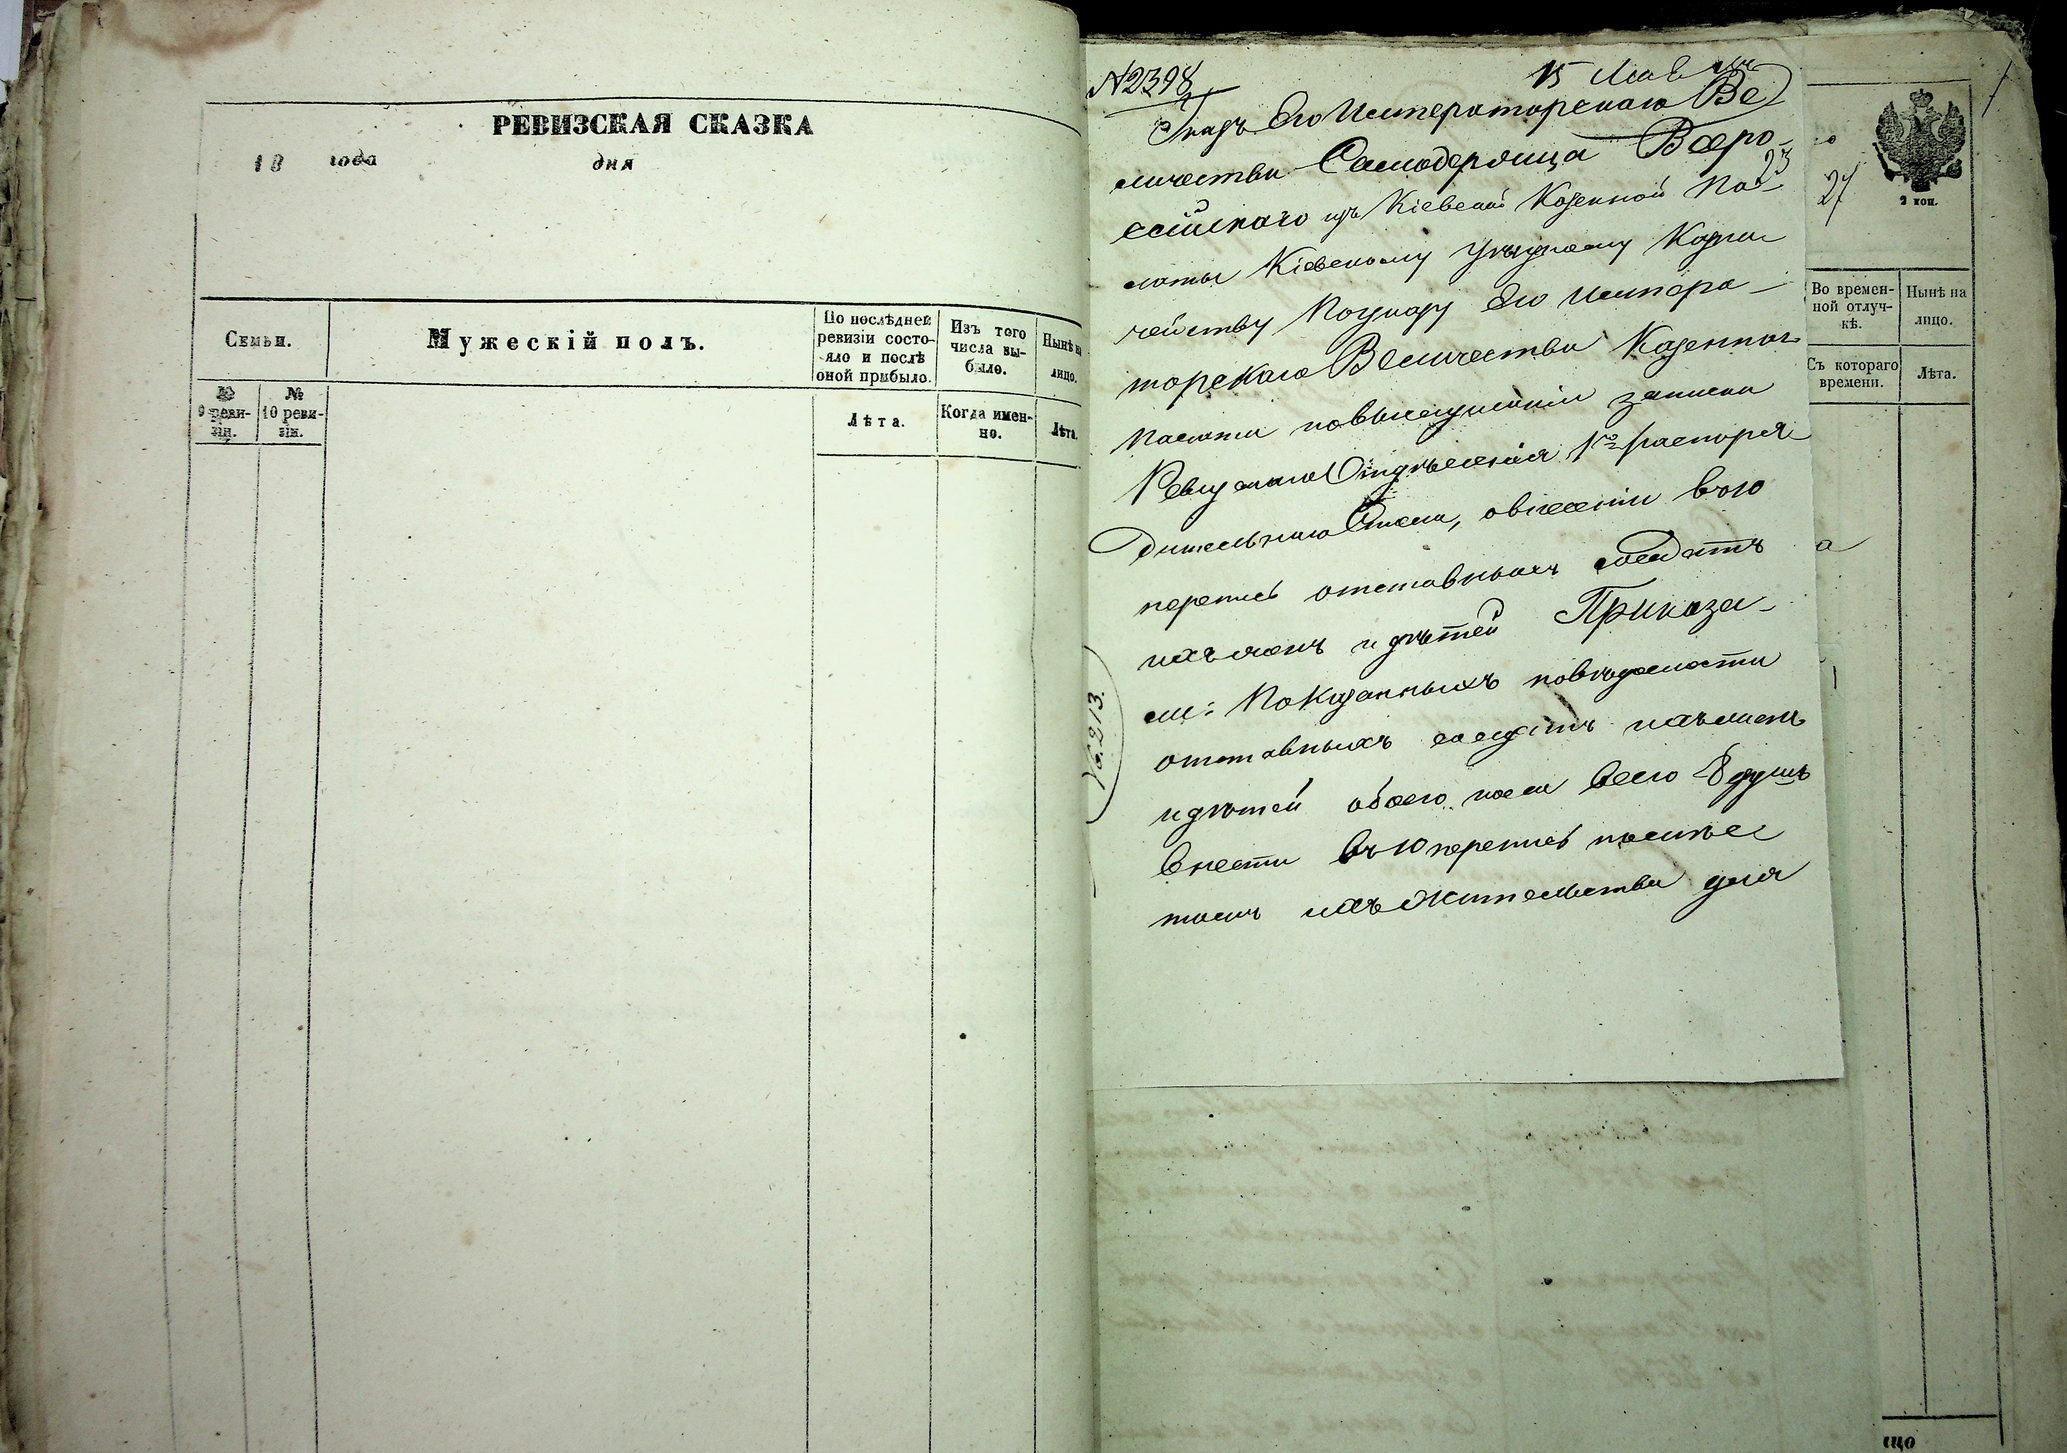 РЕВИЗСКАЯ СКАЗКА
18 года дня
Семьи.
Мужескій полъ.
По послѣдней ревизіи состо-
яло и послѣ
оной прибыло.
Изъ того
числа вы-
было.
Нынѣ на
лицо.
№
9 реви-
зіи.
№
10 реви-
зіи.
Лѣта.
Когда имен-
но.
Лѣта.
№ 2398
15
Указъ Его Императорскаго Ве
личества Самодержца Всеро-
ссійскаго изъ Кіевской Казенной Па-
латы Кіевскому Уѣздному Казна
чейству По указу Его Импера-
торскаго Величества Казенная
Палата по выслушаніи записки
Ревизскаго Отдѣленія 1го распоря
дительнаго Стола, о внесеніи въ 10
перепись отставныхъ солдатъ
ихъ женъ и дѣтей Приказа-
ли: Показанныхъ по вѣдомости
отставныхъ солдатъ ихъ женъ
и дѣтей обоего пола всего 8 душъ
внести въ 10 перепись по мѣс
тамъ ихъ жительства для
23
27
2 коп.
Во времен-
ной отлуч-
кѣ.
Нынѣ на
лицо.
Съ котораго
времени.
Лѣта.
що